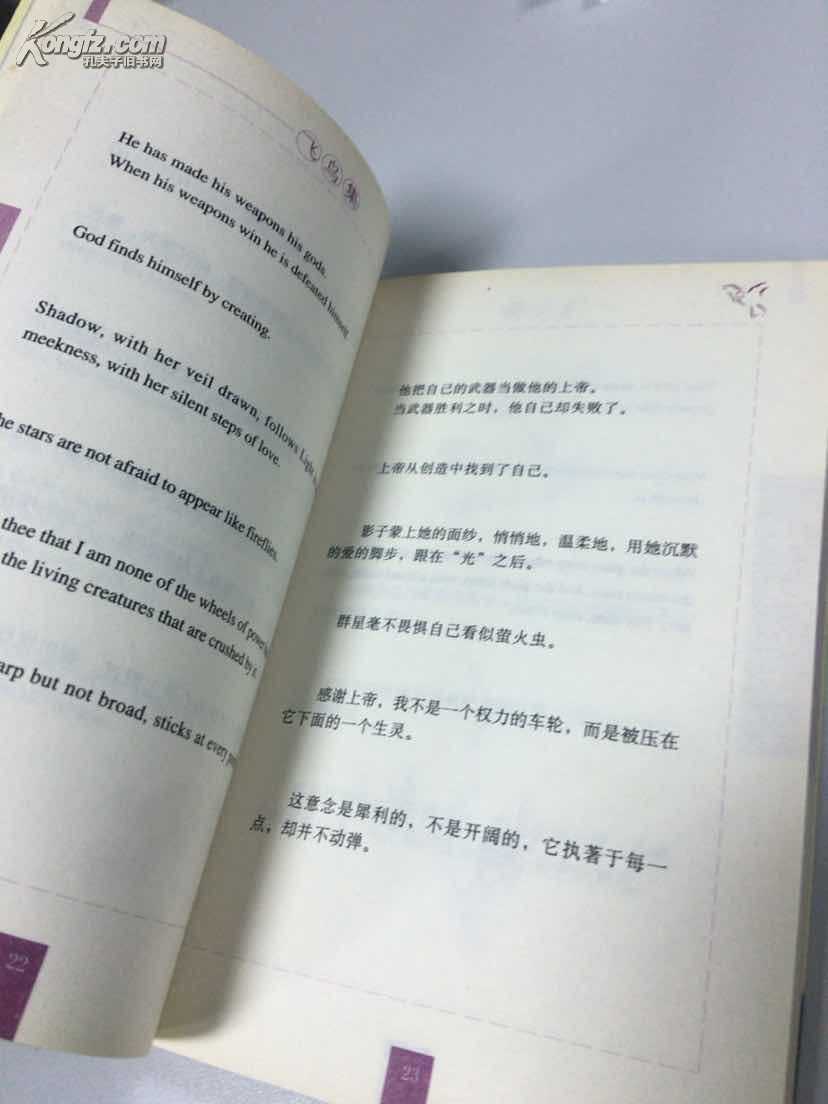 Kongfz.com
孔夫子旧书网
飞鸟集
He has made his weapons his gods.
When his weapons win he is defeated himself.
God finds himself by creating.
Shadow, with her veil drawn, follows Light
meekness, with her silent steps of love.
he stars are not afraid to appear like fireflies.
thee that I am none of the wheels of power
the living creatures that are crushed by it.
arp but not broad, sticks at every
22
他把自己的武器当做他的上帝。
当武器胜利之时，他自己却失败了。
上帝从创造中找到了自己。
影子蒙上她的面纱，悄悄地，温柔地，用她沉默
的爱的脚步，跟在“光”之后。
群星毫不畏惧自己看似萤火虫。
感谢上帝，我不是一个权力的车轮，而是被压在
它下面的一个生灵。
这意念是犀利的，不是开阔的，它执著于每一
点，却并不动弹。
23